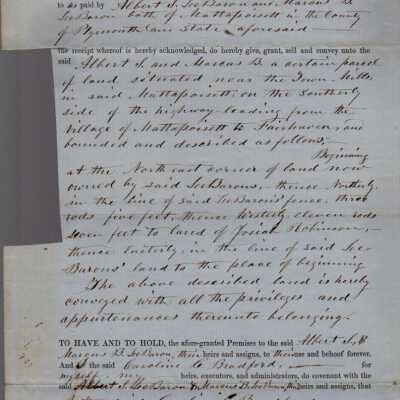 to us paid by Albert S. LeBaron and Marcus B.
LeBaron both of Mattapoisett in the County
of Plymouth and State aforesaid
the receipt whereof is hereby acknowledged, do hereby give, grant, sell and convey unto the
said Albert S. and Marcus B. a certain parcel
of land, situated near the Town Mills
in said Mattapoisett, on the Southerly
side of the highway leading from the
Village of Mattapoisett to Fairhaven, and
bounded and described as follows,
Beginning
at the North east corner of land now
owned by said LeBarons, thence Northerly,
in the line of said LeBarons' fence, three
rods five feet, thence Westerly eleven rods
seven feet to land of Josiah Robinson,
thence Easterly, in the line of said Le-
Barons' land to the place of beginning
The above described land is hereby
conveyed with all the privileges and
appurtenances thereunto belonging.
TO HAVE AND TO HOLD, the afore-granted Premises to the said Albert S. &
Marcus B. LeBaron, their heirs and assigns, to their use and behoof forever.
And I the said Caroline C. Bradford, for
myself my heirs, executors, and administrators, do covenant with the
said Albert S. LeBaron & Marcus B. LeBaron, their heirs and assigns, that